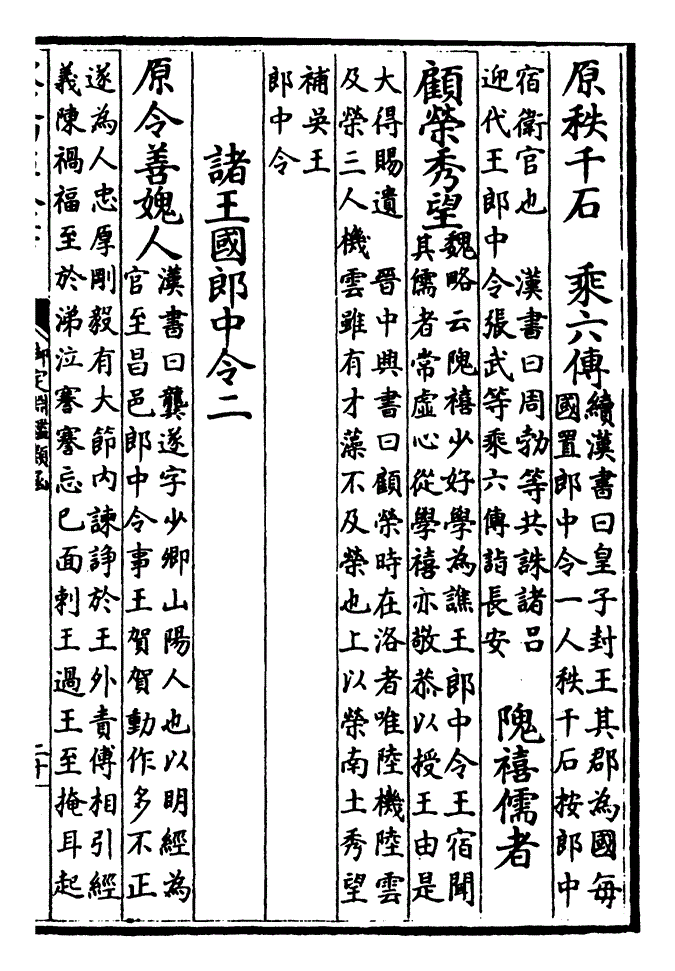 原秩千石　乘六傳
續漢書曰皇子封王其郡為國每
國置郎中令一人秩千石按郎中
宿衛官也　漢書曰周勃等共誅諸吕
迎代王郎中令張武等乘六傳詣長安
隗禧儒者
顧榮秀望
魏略云隗禧少好學為譙王郎中令王宿聞
其儒者常虛心從學禧亦敬恭以授王由是
大得賜遺　晉中興書曰顧榮時在洛者唯陸機陸雲
及榮三人機雲雖有才藻不及榮也上以榮南土秀望
補吳王
郎中令
諸王國郎中令二
原令善媿人
漢書曰龔遂字少卿山陽人也以明經為
官至昌邑郎中令事王賀賀動作多不正
遂為人忠厚剛毅有大節内諫諍於王外責傅相引經
義陳禍福至於涕泣謇謇忘已面刺王過王至掩耳起
御定淵鑑類函